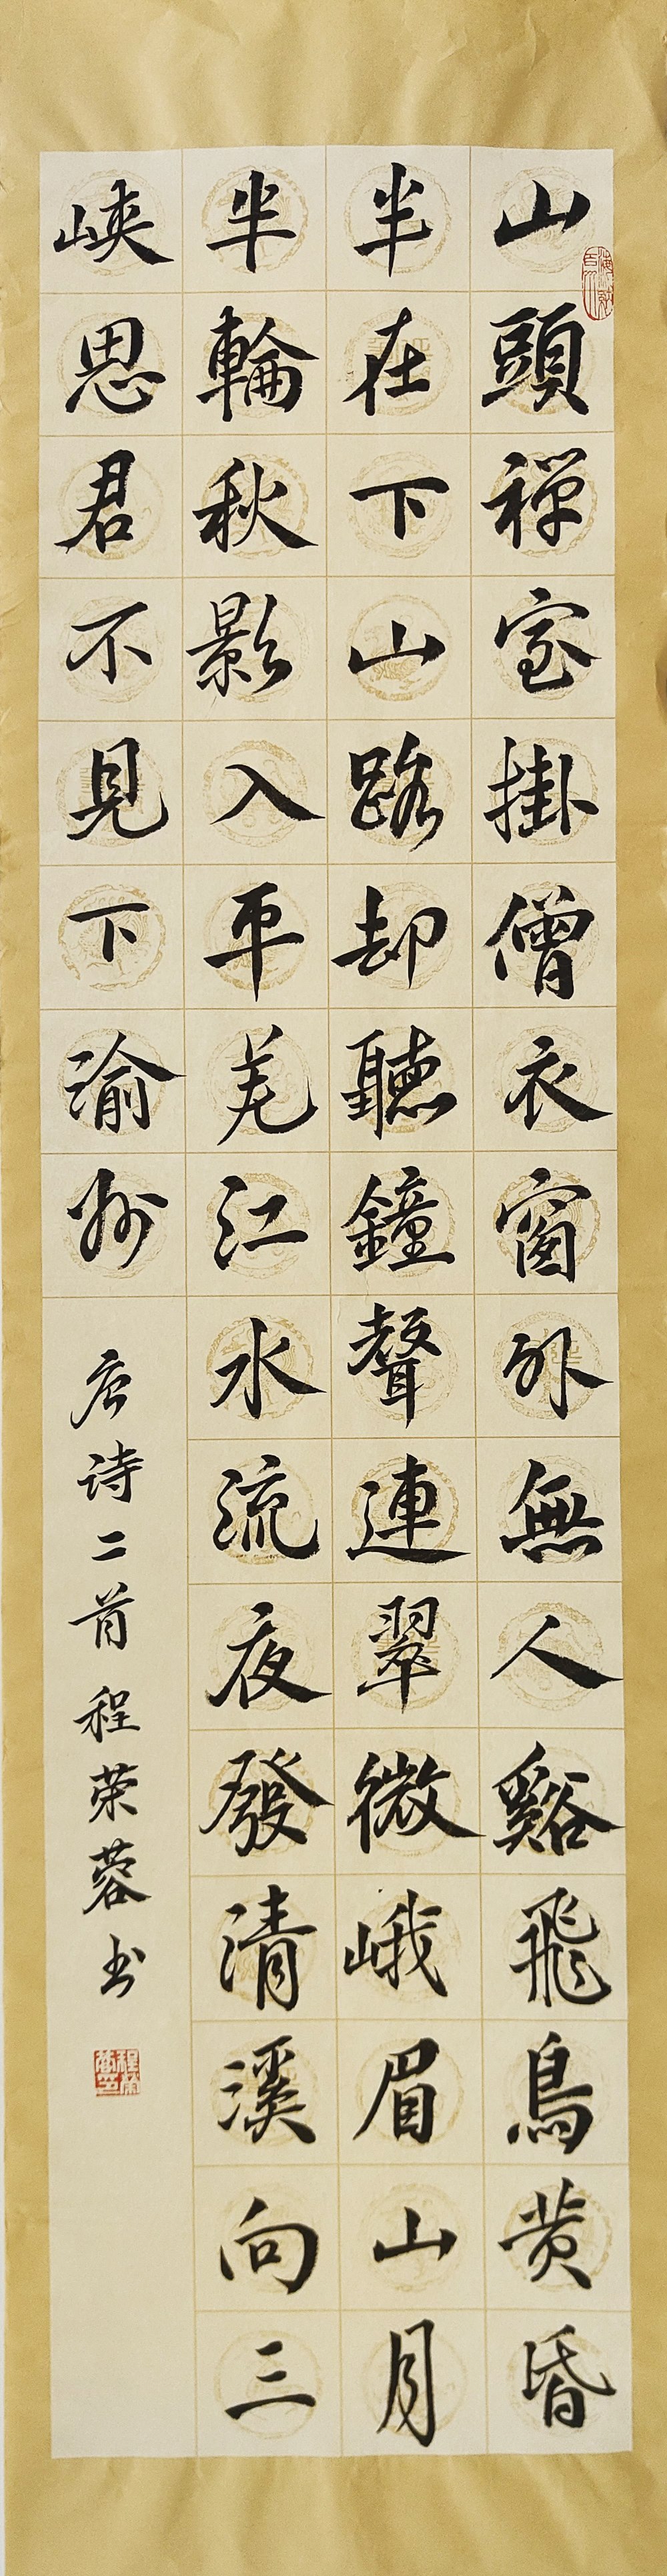 山頭禅室掛僧衣窗外無人谿飛鳥黄昏
半在下山路却聽鐘聲連翠微峨眉山月
半輪秋影入平羌江水流夜發清溪向三
峽思君不見下渝州
唐诗二首程荣蓉书